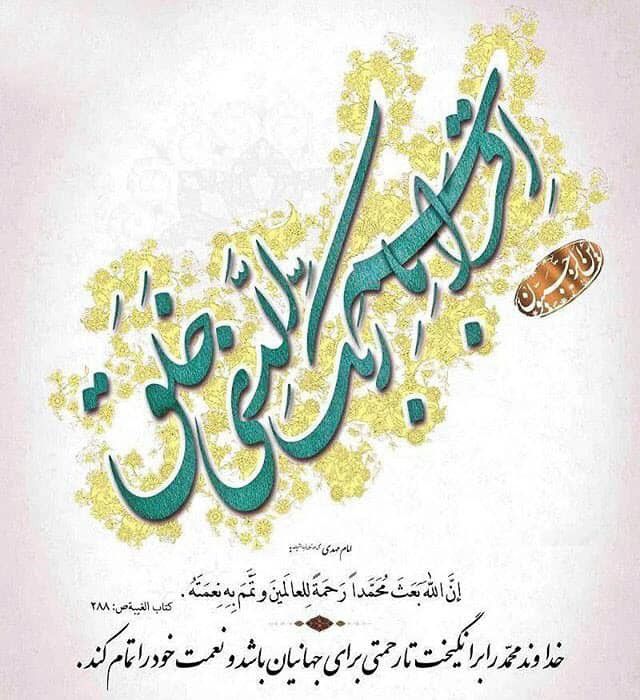 اقرأ باسم ربك الذي خلق
امام مهدی
إنَّ اللهَ بَعَثَ مُحَمَّداً رَحمَةً لِلعالَمینَ وَ تَمَّمَ بِهِ نِعمَتَهُ .
کتاب الغیبة ص: ۲۸۸
خداوند محمّد را برانگیخت تا رحمتی برای جهانیان باشد و نعمت خود را تمام کند .